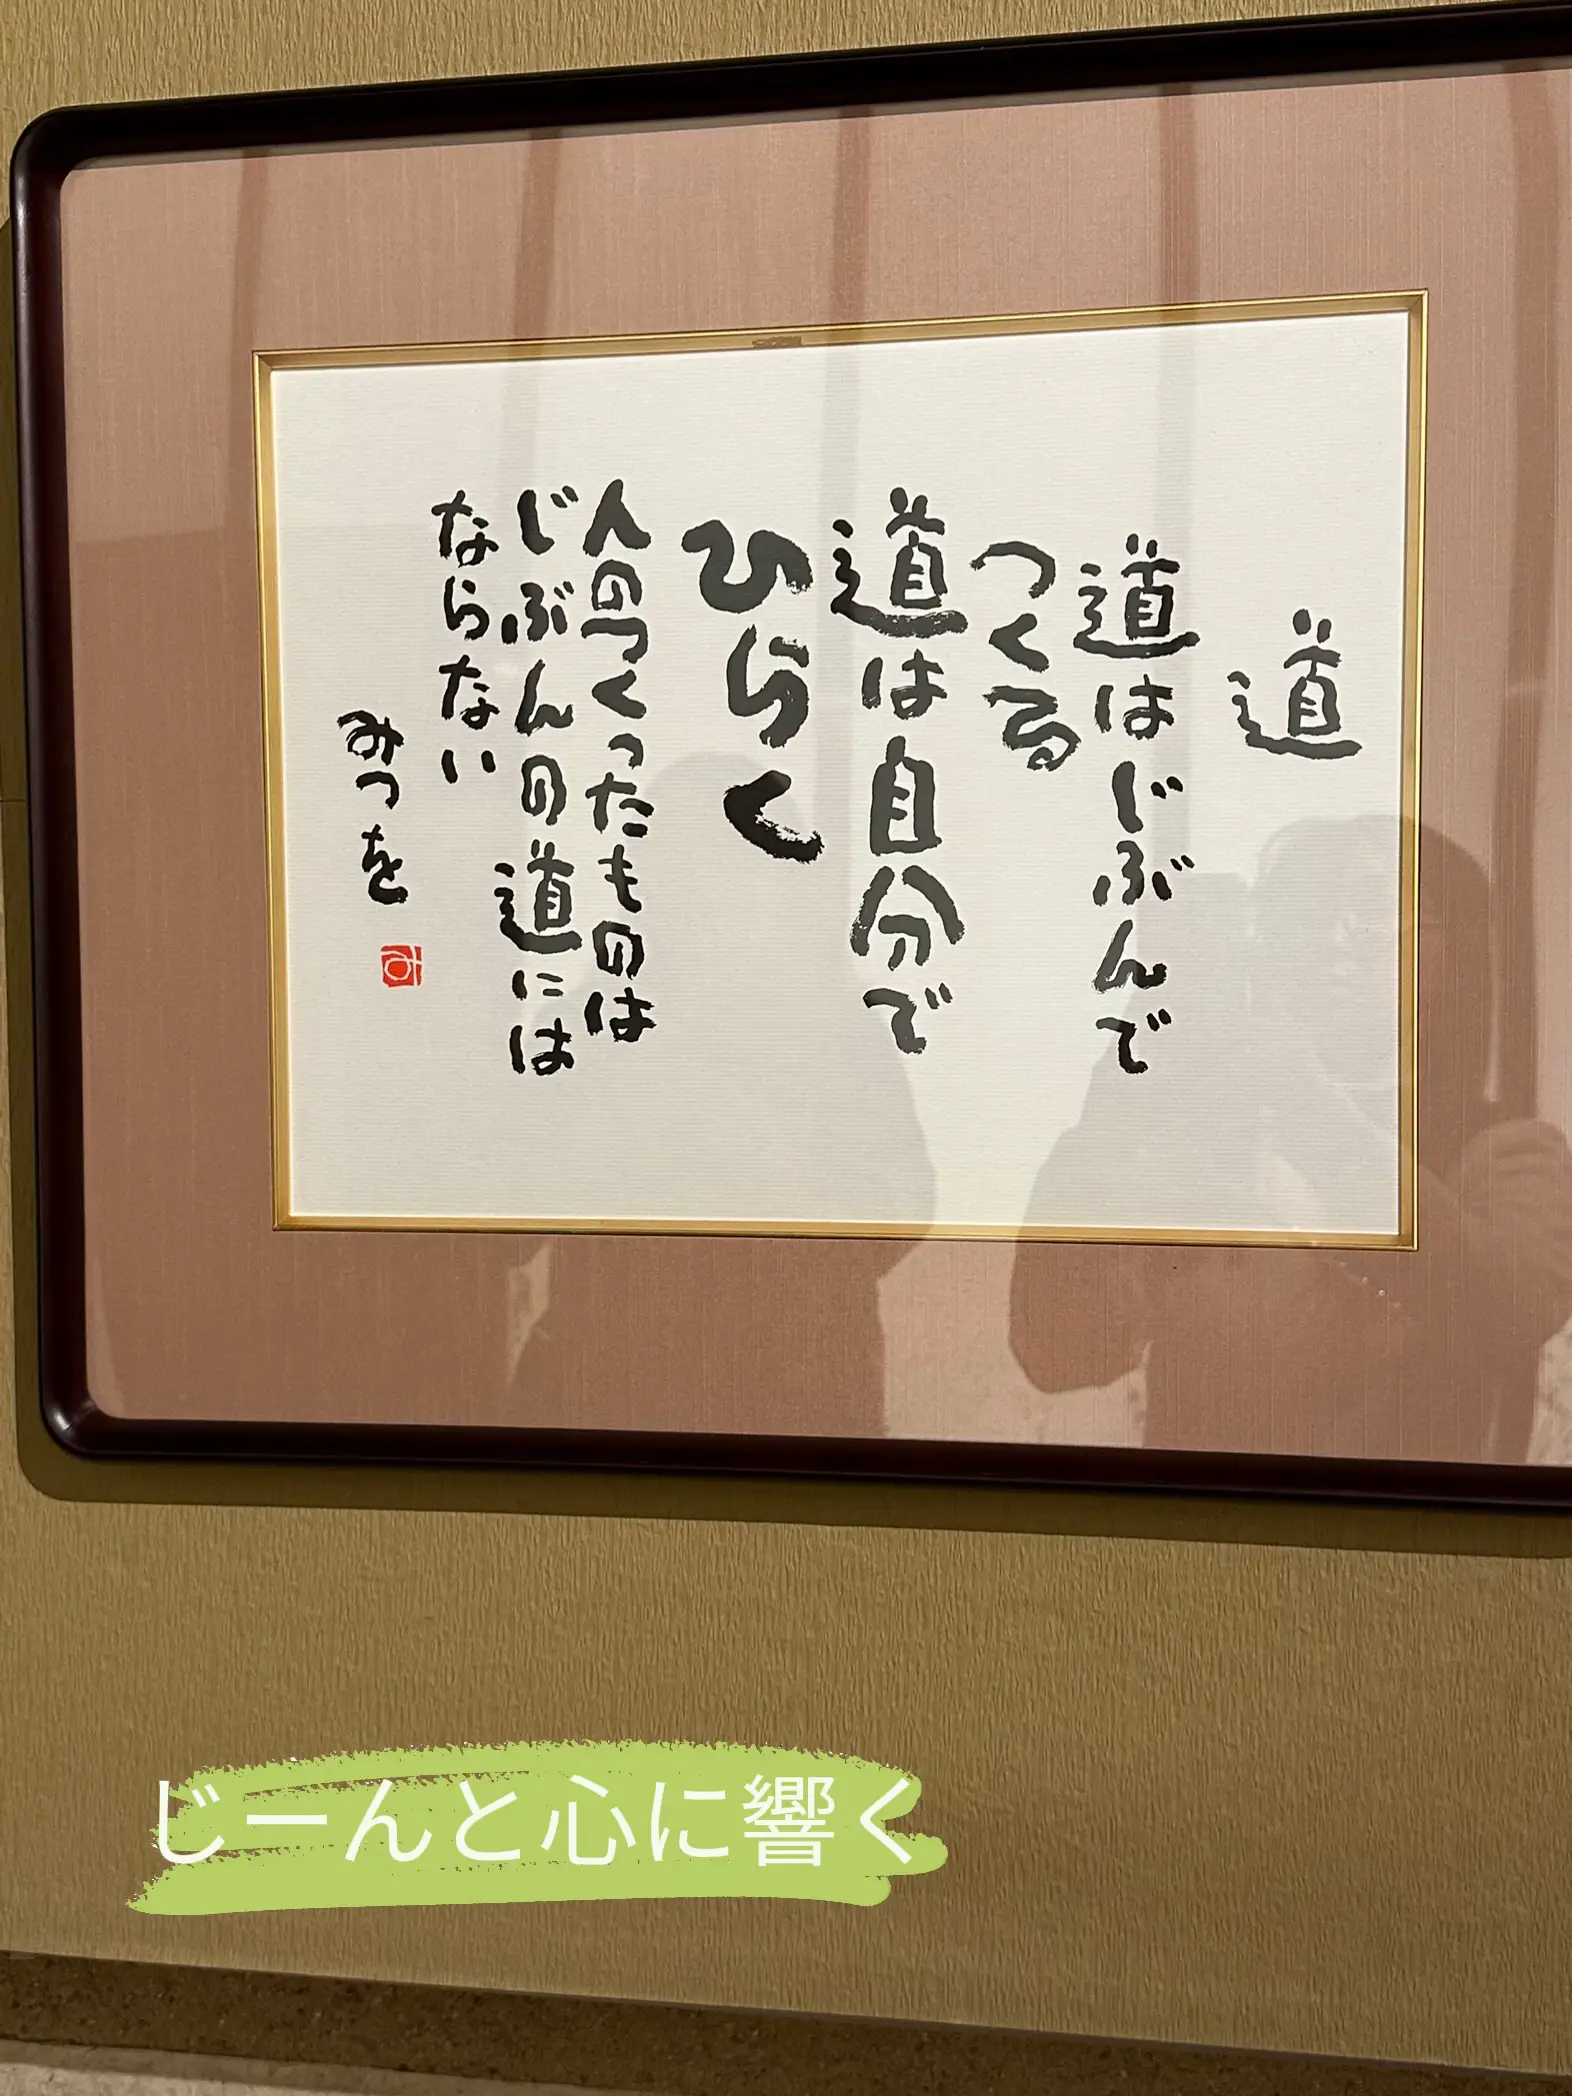 道
道はじぶんで
つくる
道は自分で
ひらく
人のつくったものは
じぶんの道には
ならない
みつを
じーんと心に響く